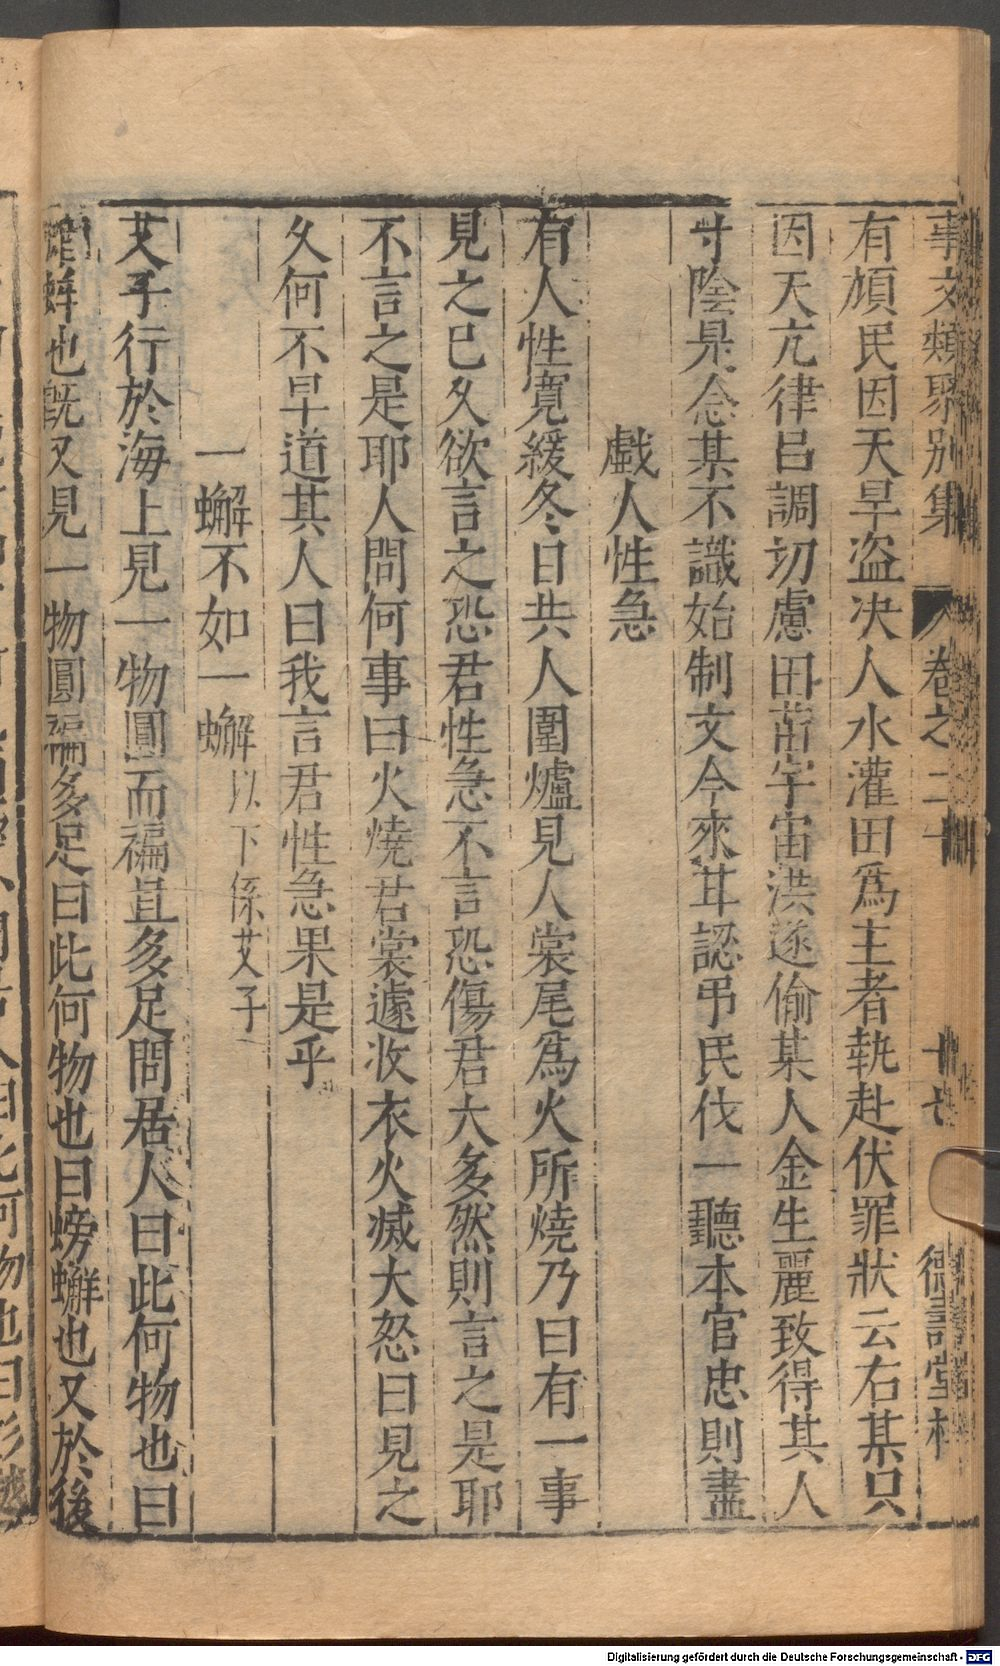 事文類聚別集 卷之二十 十七 德壽堂梓
有頑民因天旱盗决人水灌田爲主者執赴伏罪狀云右某只
因天亢律呂調切慮田苗宇宙洪遂偷某人金生麗致得其人
寸陰是念某不識始制文今來甘認吊民伐一聽本官忠則盡
戲人性急
有人性寬緩冬日共人圍爐見人裳尾爲火所燒乃曰有一事
見之已久欲言之恐君性急不言恐傷君大多然則言之是耶
不言之是耶人問何事曰火燒君裳遽收衣火滅大怒曰見之
久何不早道其人曰我言君性急果是乎
一蠏不如一蠏以下係艾子
艾子行於海上見一物圓而褊且多足問居人曰此何物也曰
蝤蛑也既又見一物圓褊多足曰此何物也曰螃蠏也又於後
Digitalisierung gefördert durch die Deutsche Forschungsgemeinschaft - DFG